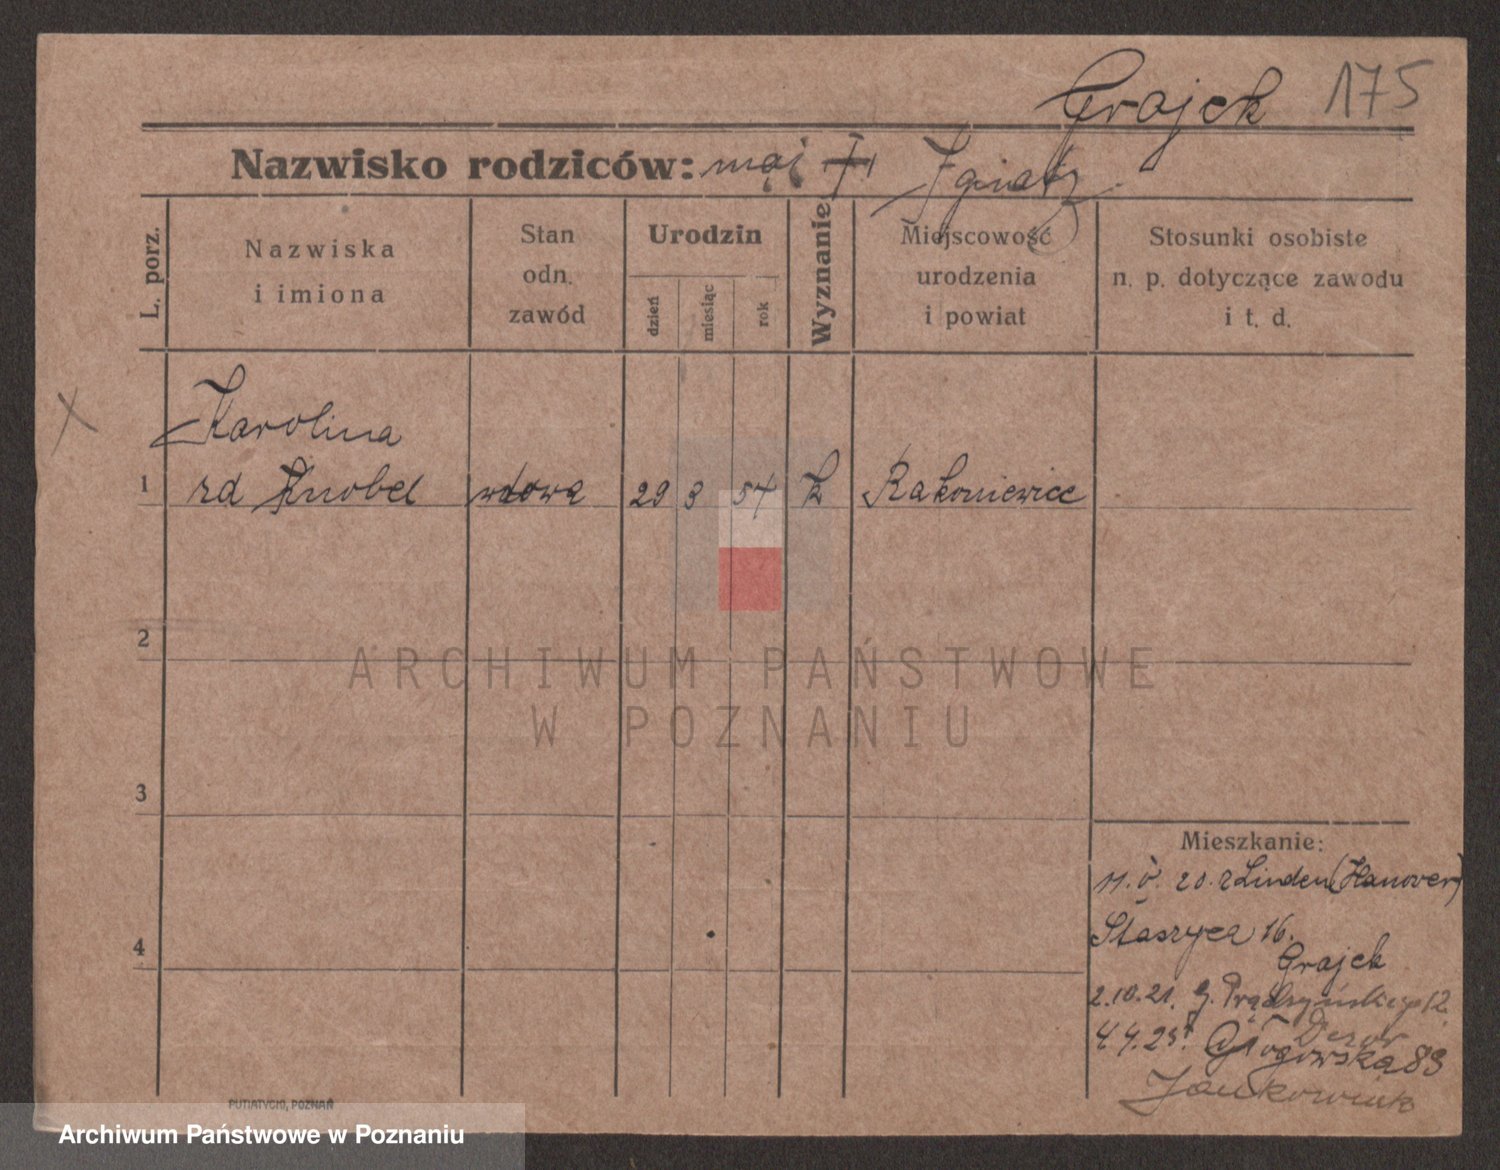 Grajek 175
Nazwisko rodziców: mąż Ignatz
L. porz.
Nazwiska
i imiona
Stan
odn.
zawód
Urodzin
dzień
miesiąc
rok
Wyznanie
Miejscowość
urodzenia
i powiat
Stosunki osobiste
n. p. dotyczące zawodu
i t. d.
Karolina
1 rd Knobel wdowa 29 3 54 k Rakoniewice
2
3
4
Mieszkanie:
20. 2 Linden (Hanover)
Staszyca 16.
Grajek
2.10.21. G. Prądzyńskiego 12.
Głogowska 83
Jankowiak
PUTIATYCKI, POZNAŃ
ARCHIWUM PAŃSTWOWE
W POZNANIU
Archiwum Państwowe w Poznaniu